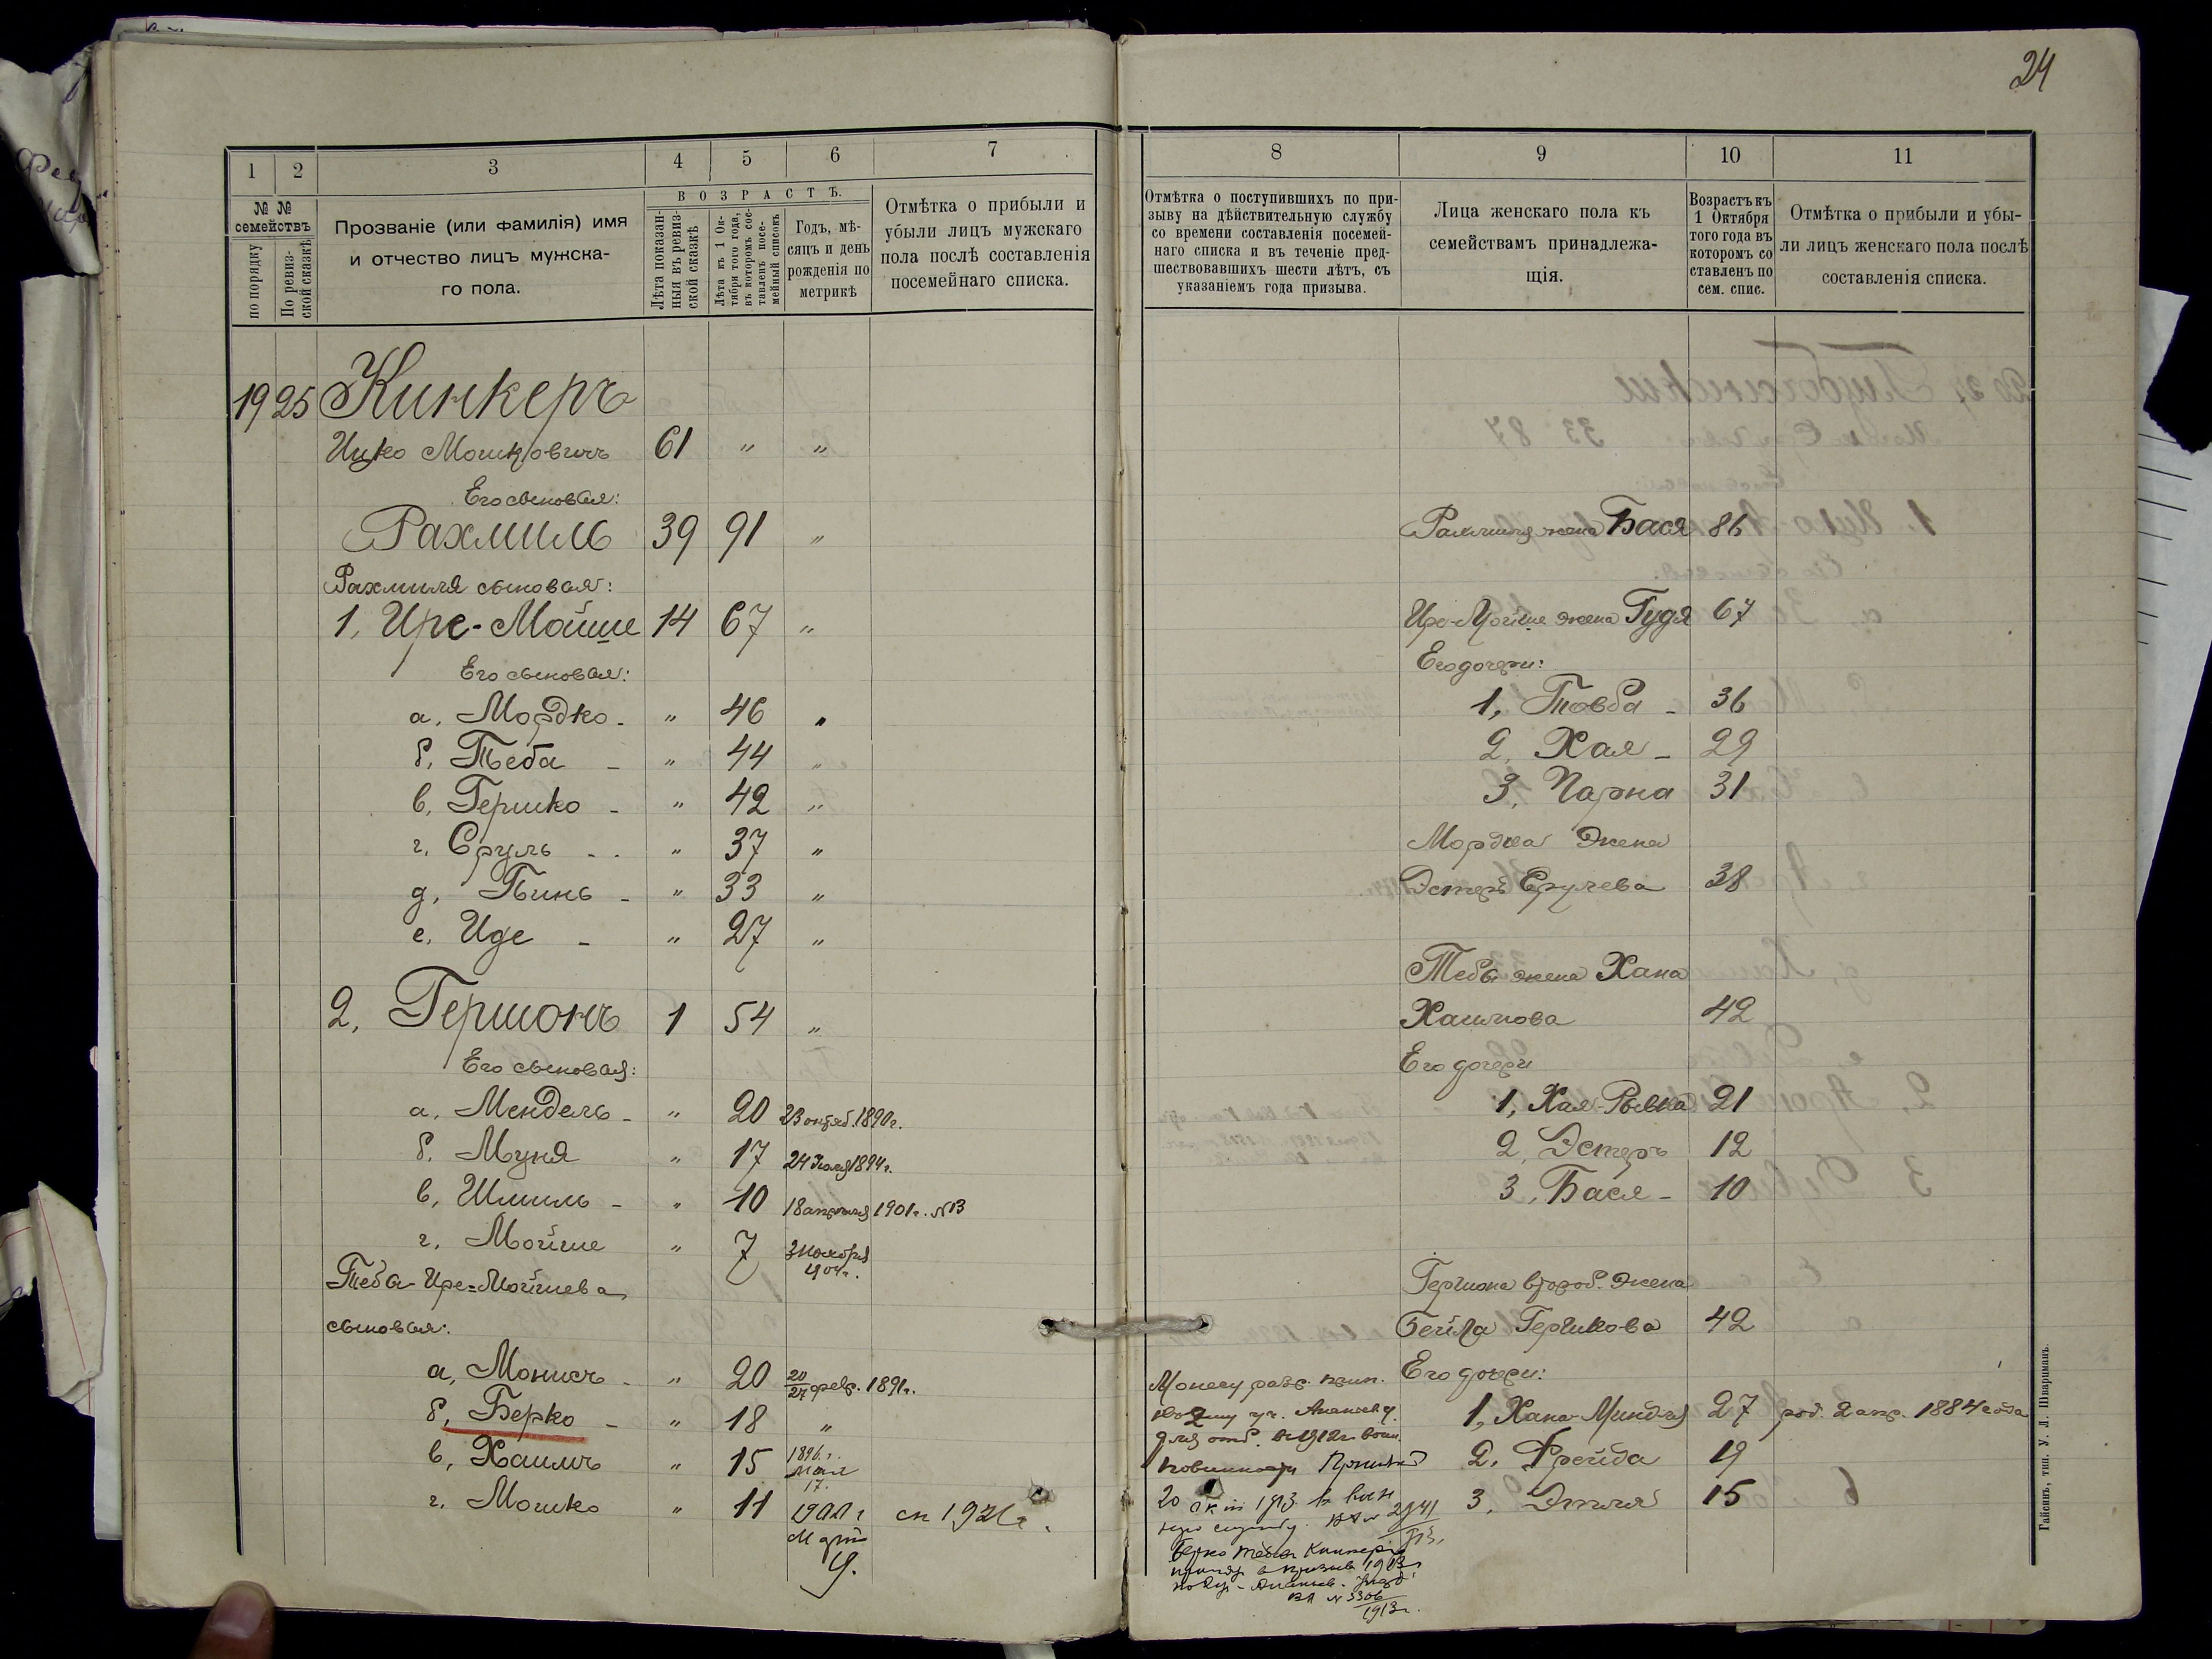 24
1
2
3
4
5
6
7
№ №
семействъ
по порядку
По ревиз-
ской сказкѣ
Прозваніе (или фамилія) имя
и отчество лицъ мужска-
го пола.
ВОЗРАСТЪ.
Лѣта показан-
ныя въ ревиз-
ской сказкѣ
Лѣта къ 1 Ок-
тября того года,
въ которомъ сос-
тавленъ посе-
мейный списокъ
Годъ, мѣ-
сяцъ и день
рожденія по
метрикѣ
Отмѣтка о прибыли и
убыли лицъ мужскаго
пола послѣ составленія
посемейнаго списка.
19 25 Кинкеръ
Ицко Мошковичъ 61 " "
Его сыновья:
Рахмиль 39 91 "
Рахмиля сыновья:
1, Ире-Мойше 14 67 "
Его сыновья:
а, Мордко - " 46 "
б, Теба - " 44 "
в, Гершко - " 42 "
г, Сруль - - " 37 "
д, Пинь - " 33 "
е, Иде - " 27 "
2, Гершонъ 1 54 "
Его сыновья:
а, Мендель - " 20 23 октяб. 1890г.
б, Муня " 17 24 1894г.
в, Шмиль - " 10 18 апрѣля 1901г. №13
г, Мойше " 7 3 ноября
1904г.
Теба Ире-Мойшева
сыновья:
а, Монисъ - " 20 20/27 февр. 1891г.
б, Берко - " 18 "
в, Хаимъ " 15 1896г.
мая
17.
г, Мошко " 11 1900г сп 1921г.
Март
9.
8
9
10
11
Отмѣтка о поступившихъ по при-
зыву на дѣйствительную службу
со времени составленія посемей-
наго списка и въ теченіе пред-
шествовавшихъ шести лѣтъ, съ
указаніемъ года призыва.
Лица женскаго пола къ
семействамъ принадлежа-
щія.
Возрастъ къ
1 Октября
того года въ
которомъ со
ставленъ по
сем. спис.
Отмѣтка о прибыли и убы-
ли лицъ женскаго пола послѣ
составленія списка.
Рахмиля жена Бася 86
Ире-Мойше жена Гудя 67
Его дочери:
1, Товба - 36
2, Хая - 29
3, Чарна 31
Мордка жена
Эстеръ Срулева 38
Тебы жена Хана
Хаимова 42
Его дочери
1, Хая-Рывка 21
2, Эстеръ 12
3, Бася - 10
Гершона второб. жена
Бейла Гершкова 42
Его дочери:
1, Хана-Миндля 27 род. 2 апр. 1884 года
2, Фрейда 19
3, Этля 15
Монесу разр. прип.
ко 2му уч. Ананьев у.
для отб. в 1912г воин.
повинности Принят
20 окт 1913 в воен
ную службу. ВД № 2941/913.
Берко Тебов Кинкер
принят в призыв 1913г
по - Ананьев. уезд
ВД № 3306/1913г.
Гайсинъ, тип. У. Л. Шварцманъ.